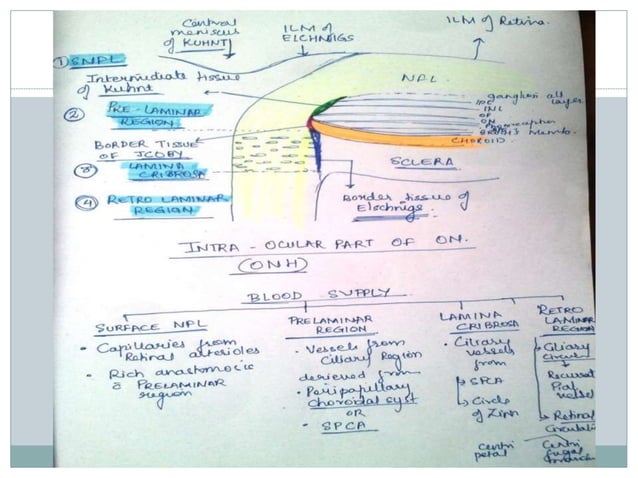 Central
meniscus
of KUHNT
ILM of
ELCHNIGS
ILM of Retina.
① SNFL
Intermediate tissue
of Kuhnt
② PRE-LAMINAR
REGION
BORDER TISSUE
OF JCOBY
③ LAMINA
CRIBROSA
④ RETRO LAMINAR
REGION
NFL
ganglion
layer
IPL
INL
OP
ON
Photoreceptor
CHOROID
SCLERA
Border tissue of
Elschnigs.
INTRA - OCULAR PART OF ON.
(ONH)
BLOOD SUPPLY
SURFACE NFL
• Capillaries from
Retinal arterioles
• Rich anastomosis
c̄ PRELAMINAR
region
PRELAMINAR
REGION
• Vessels from
Ciliary Region
derieved from
• Peripapillary
Choroidal syst
OR
• SPCA
LAMINA
CRIBROSA
• Ciliary
vessels
from
SPCA
Circle
of Zinn
centri
petal
RETRO
LAMINAR
REGION
Ciliary
Circulⁿ
Recurrent
Pial
vessel
Retinal
Circulati
Centri
fugal